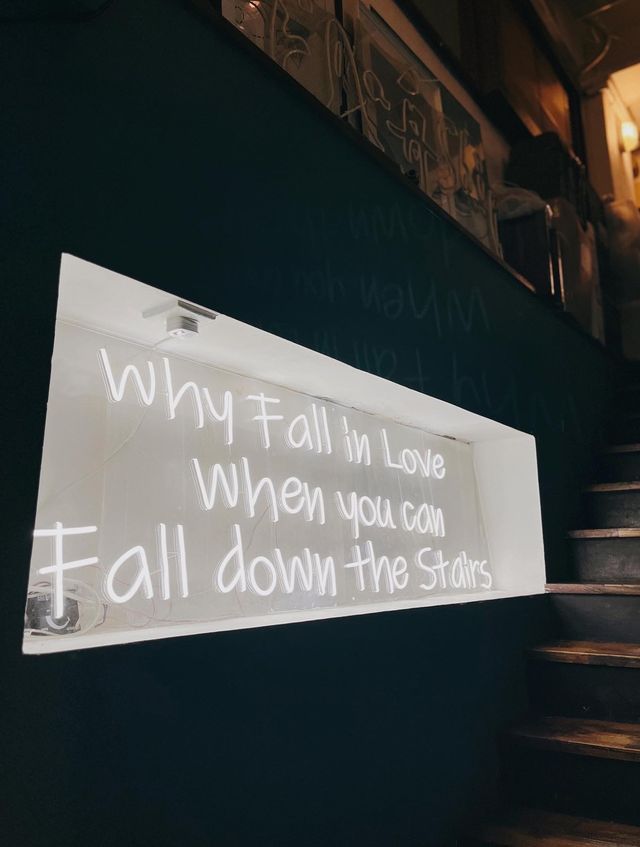 Why Fall in Love
When you can
Fall down the Stairs